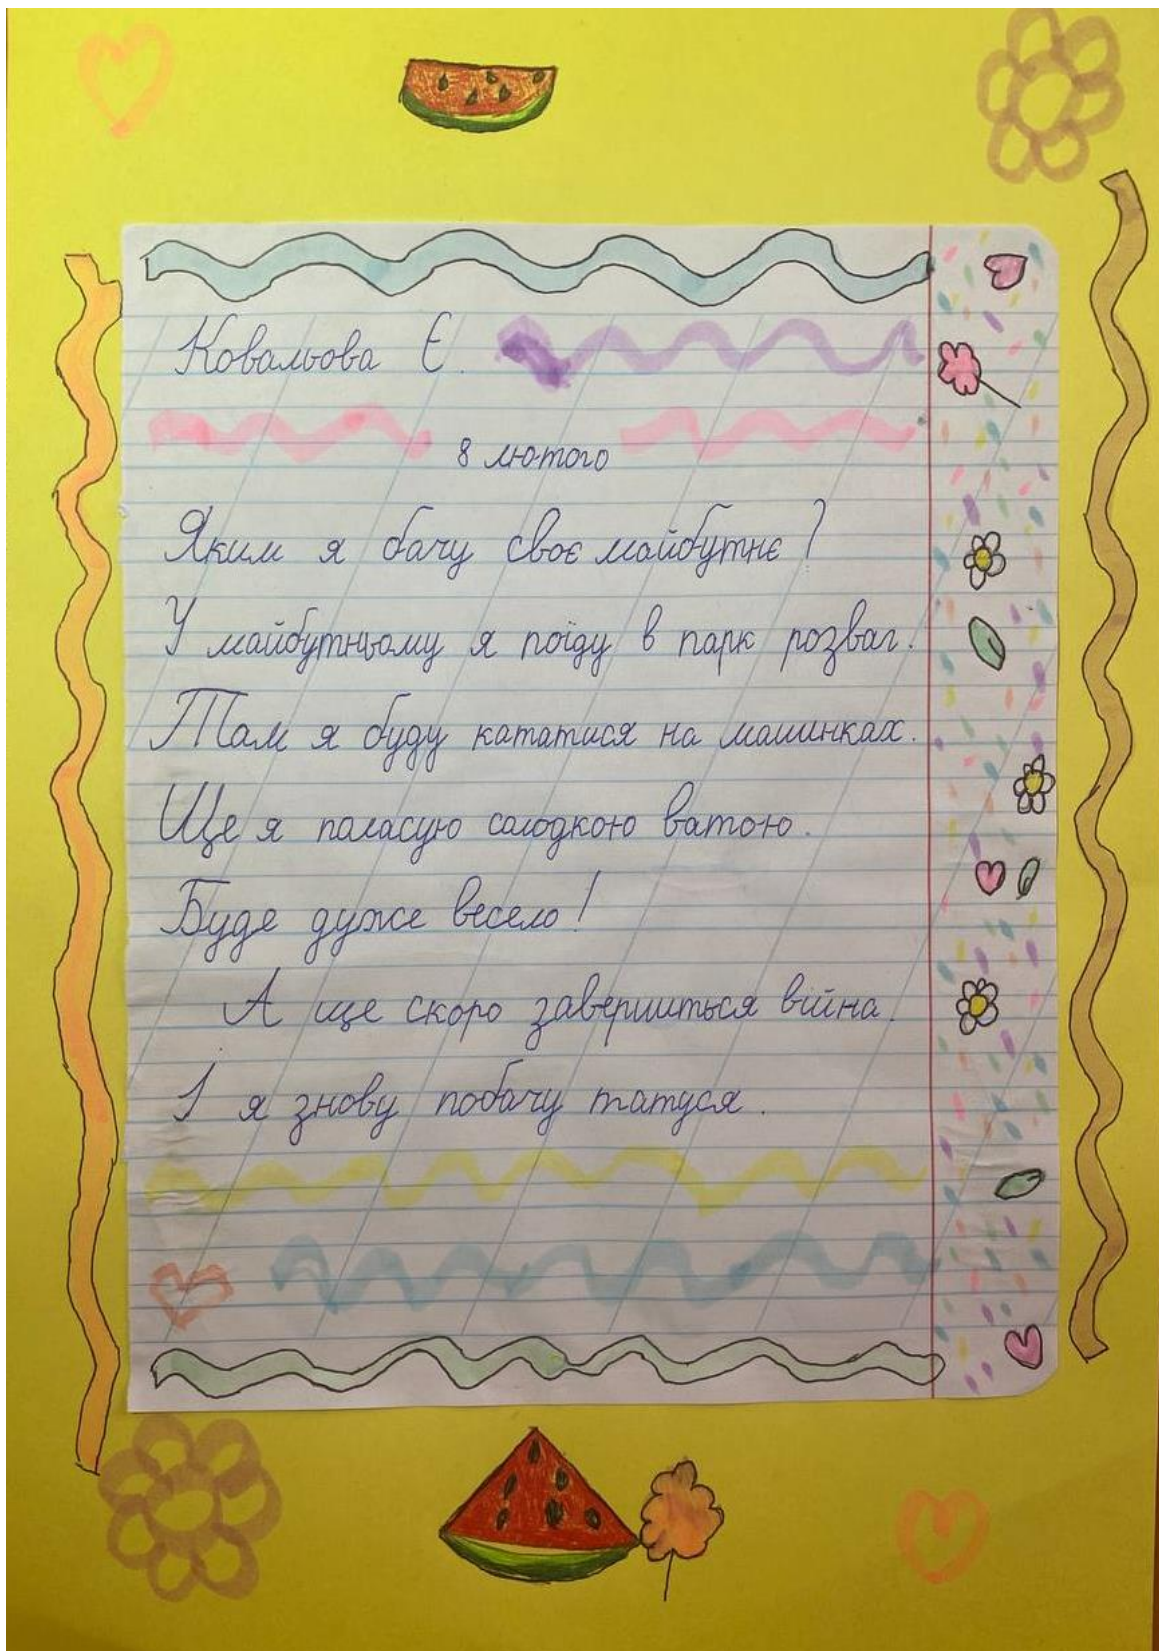 Ковальова Є.
8 лютого
Яким я бачу своє майбутнє?
У майбутньому я поїду в парк розваг.
Там я буду кататися на машинках.
Ще я поласую солодкою ватою.
Буде дуже весело!
А ще скоро завершиться війна.
І я знову побачу татуся.